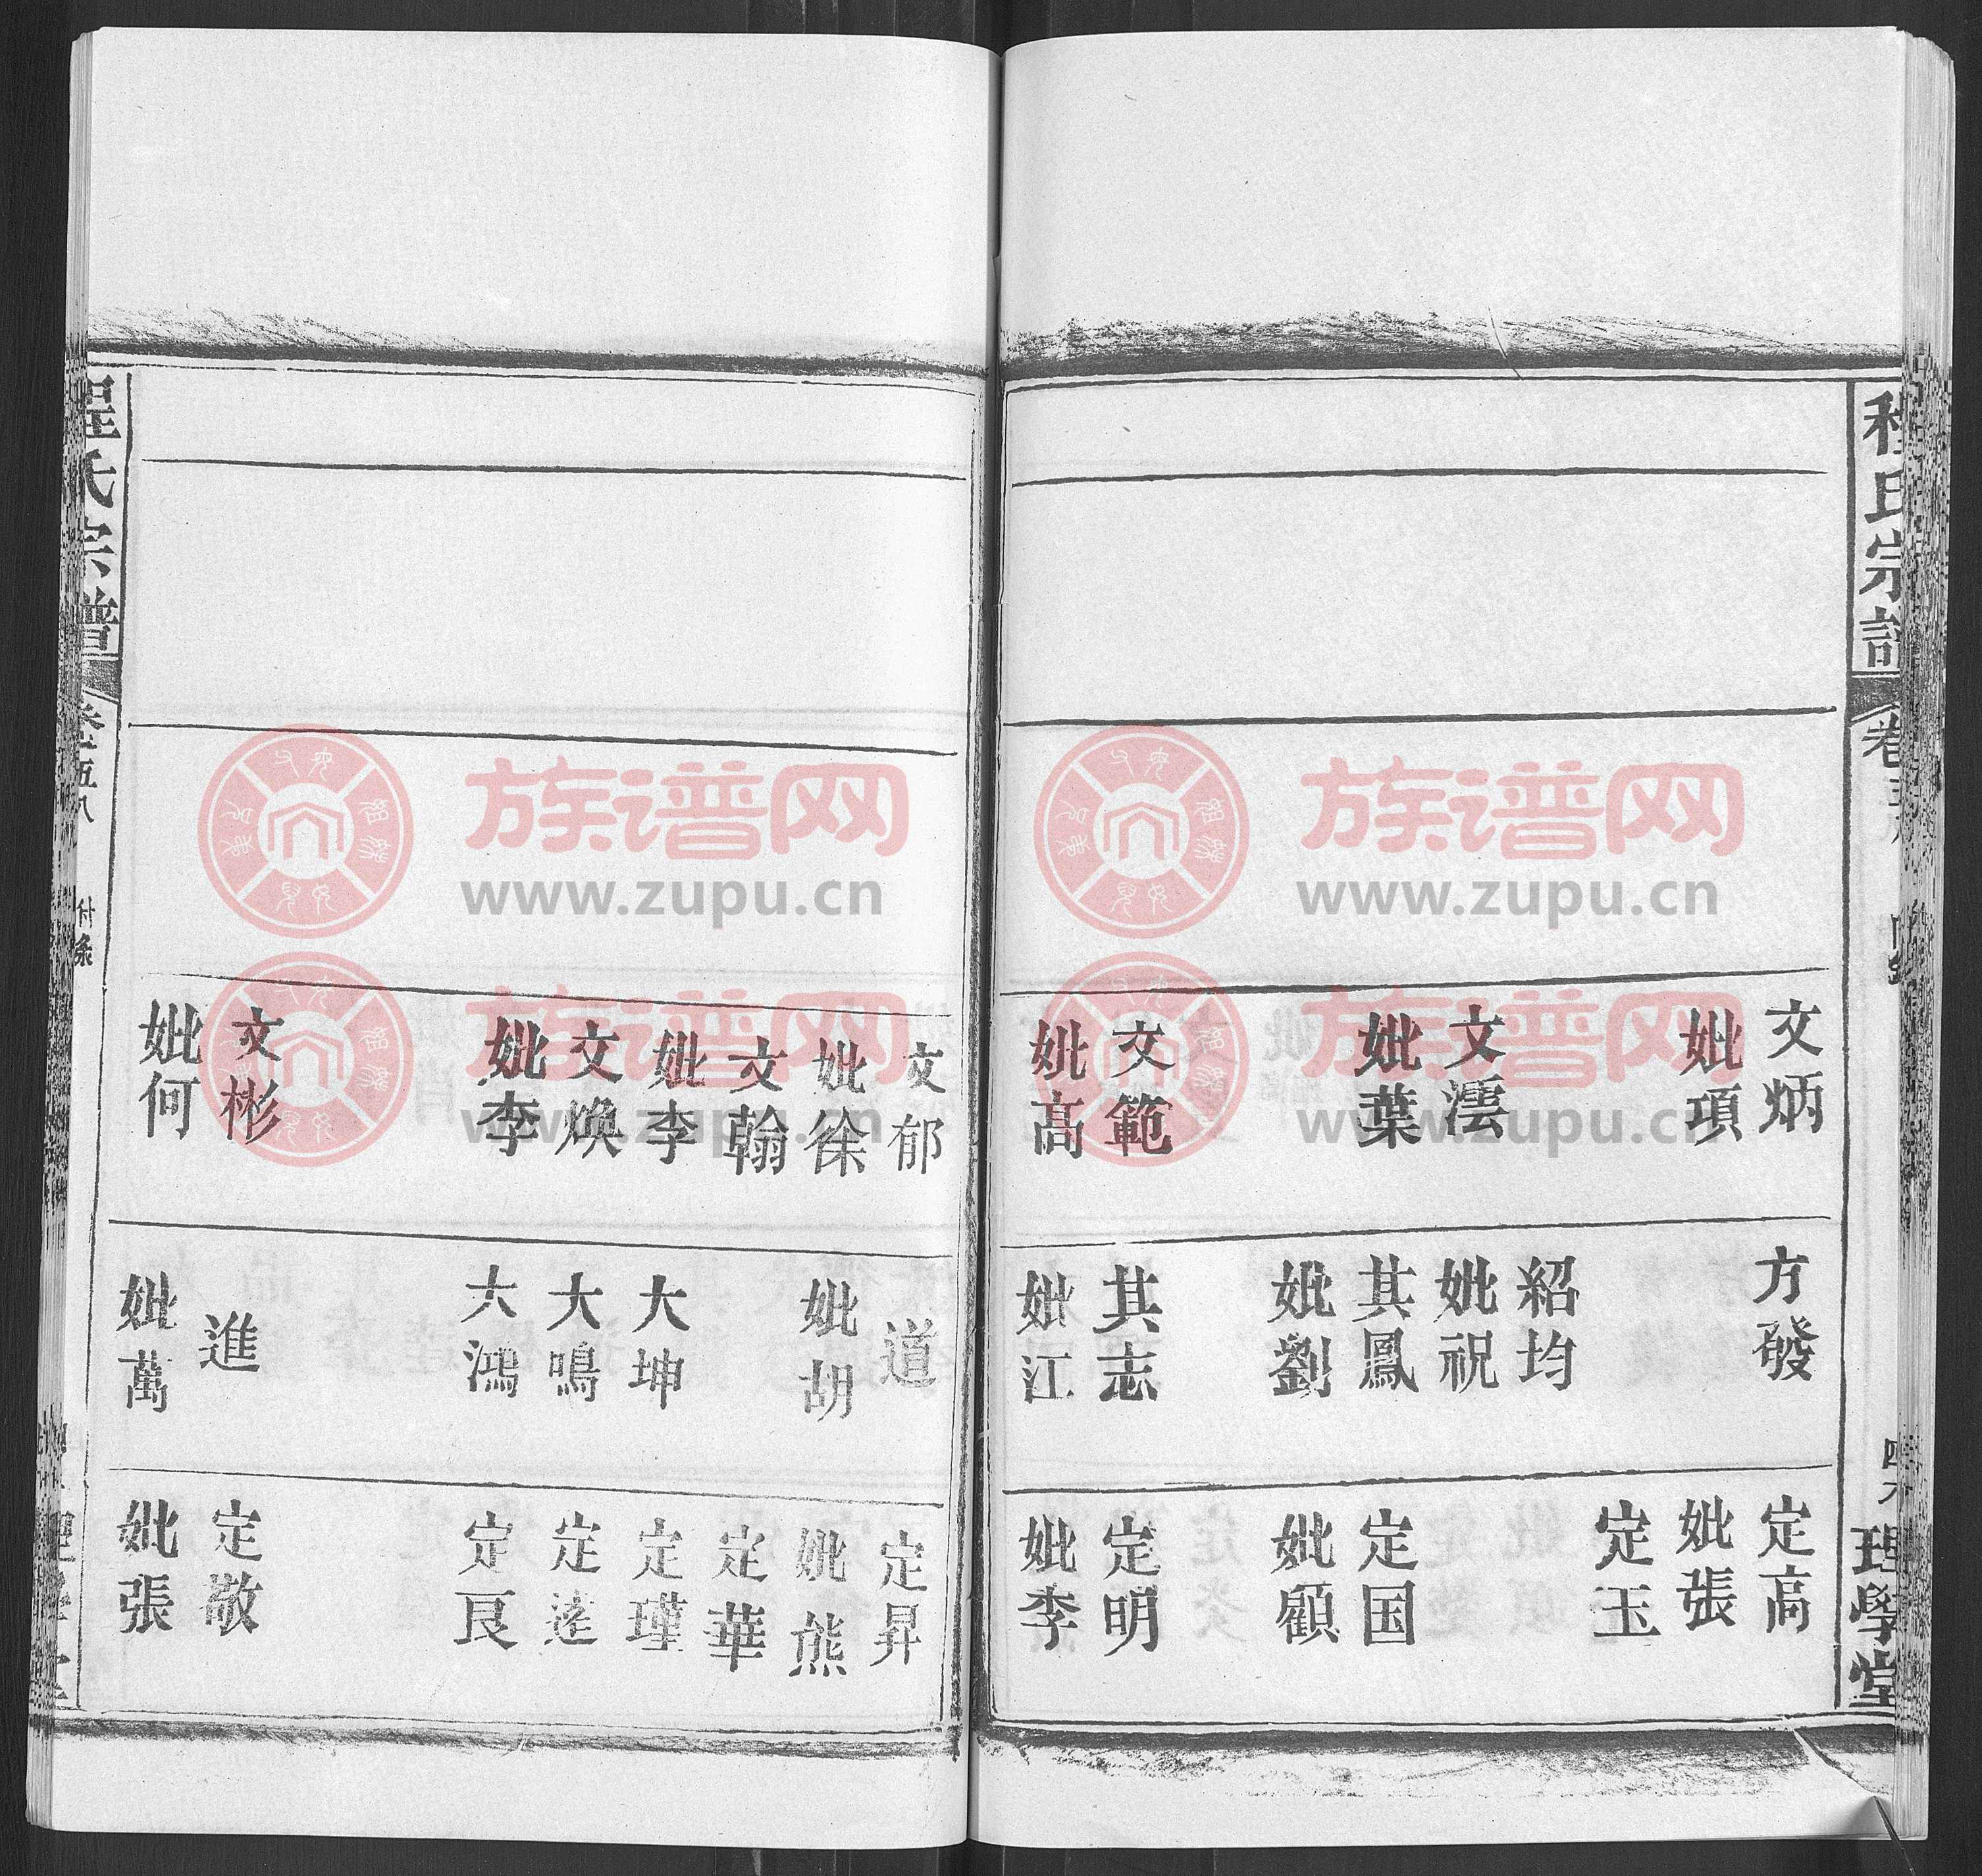 程氏宗譜
卷
理學堂
文炳
妣項
文澐
妣葉
文範
妣高
方發
紹均
妣祝
其鳳
妣劉
其志
妣江
定高
妣張
定玉
定国
妣顧
定明
妣李
文郁
妣徐
文翰
妣李
文煥
妣李
文彬
妣何
道
妣胡
大坤
大鳴
大鴻
進
妣萬
定昇
妣熊
定華
定瑾
定蓬
定良
定敬
妣張
程氏宗譜
卷五八
付梓
族谱网
www.zupu.cn
族谱网
www.zupu.cn
族谱网
www.zupu.cn
族谱网
www.zupu.cn